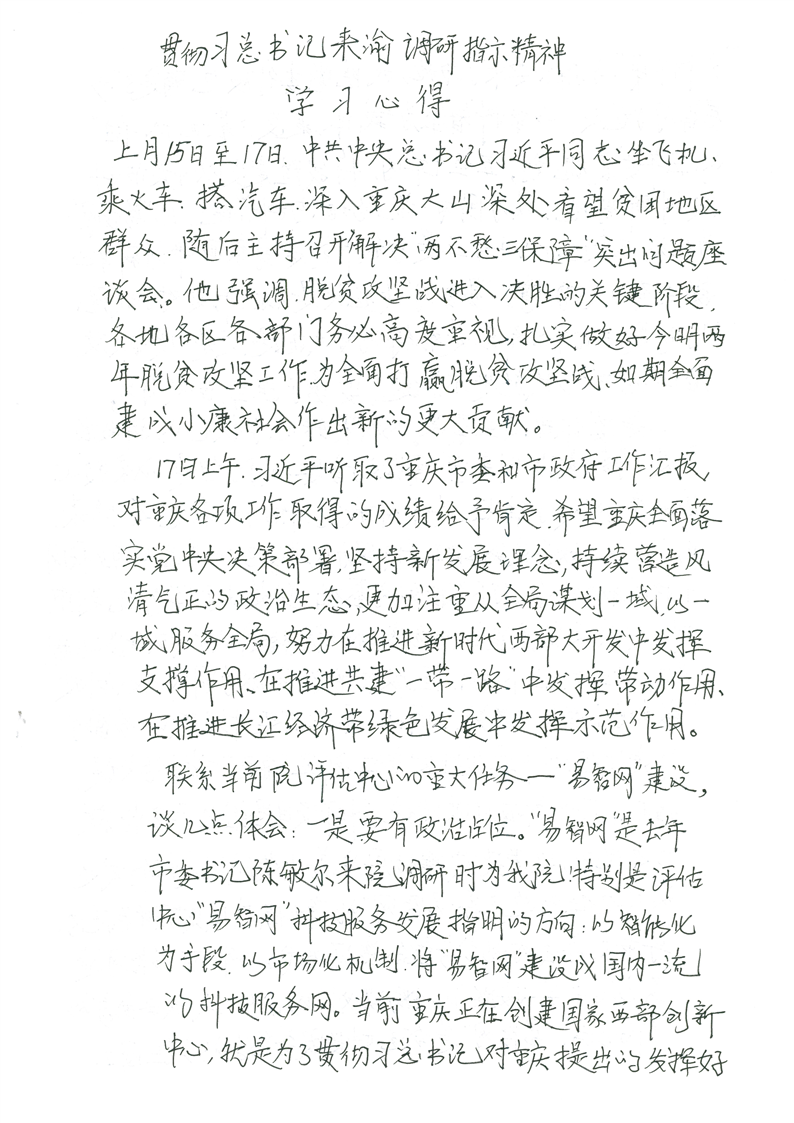 贯彻习总书记来渝调研指示精神
学习心得
上月15日至17日、中共中央总书记习近平同志坐飞机、
乘火车、搭汽车、深入重庆大山深处、看望贫困地区
群众、随后主持召开解决“两不愁三保障”突出问题座
谈会。他强调、脱贫攻坚战进入决胜的关键阶段，
各地各区各部门务必高度重视，扎实做好今明两
年脱贫攻坚工作、为全面打赢脱贫攻坚战、如期全面
建成小康社会作出新的更大贡献。
17日上午、习近平听取了重庆市委和市政府工作汇报，
对重庆各项工作取得的成绩给予肯定、希望重庆全面落
实党中央决策部署，坚持新发展理念，持续营造风
清气正的政治生态，更加注重从全局谋划一域、以一
域服务全局，努力在推进新时代西部大开发中发挥
支撑作用、在推进共建“一带一路”中发挥带动作用、
在推进长江经济带绿色发展中发挥示范作用。
联系当前院评估中心的重大任务—“易智网”建设，
谈几点体会：一是要有政治占位。“易智网”是去年
市委书记陈敏尔来院调研时为我院！特别是评估
中心“易智网”科技服务发展指明的方向：以智能化
为手段、以市场化机制、将“易智网”建设成国内一流
的科技服务网。当前重庆正在创建国家西部创新
中心，就是为了贯彻习总书记对重庆提出的发挥好